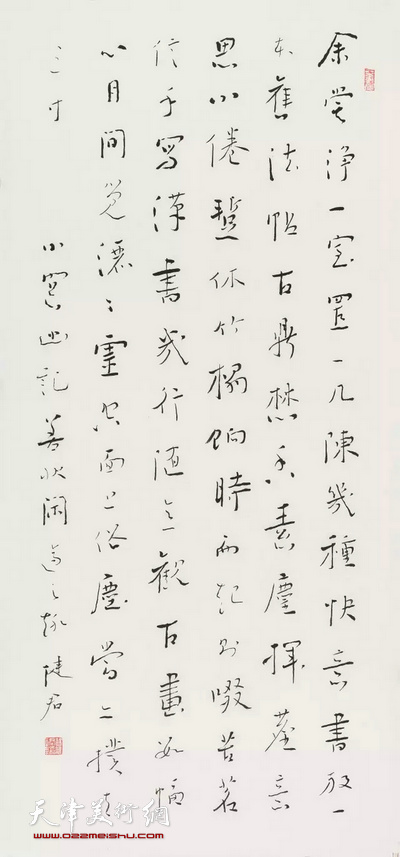 余嘗淨一室置一几陳幾種快意書放一
本舊法帖古鼎焚香素麈揮塵意
思小倦暫休竹榻餉時而起則啜苦茗
信手寫漢書幾行随意觀古畫數幅
心目間覺灑〻靈空面上俗塵當亦撲去
三寸
小窗幽記善狀閑適之趣 君
天津美术网
www.022meishu.com